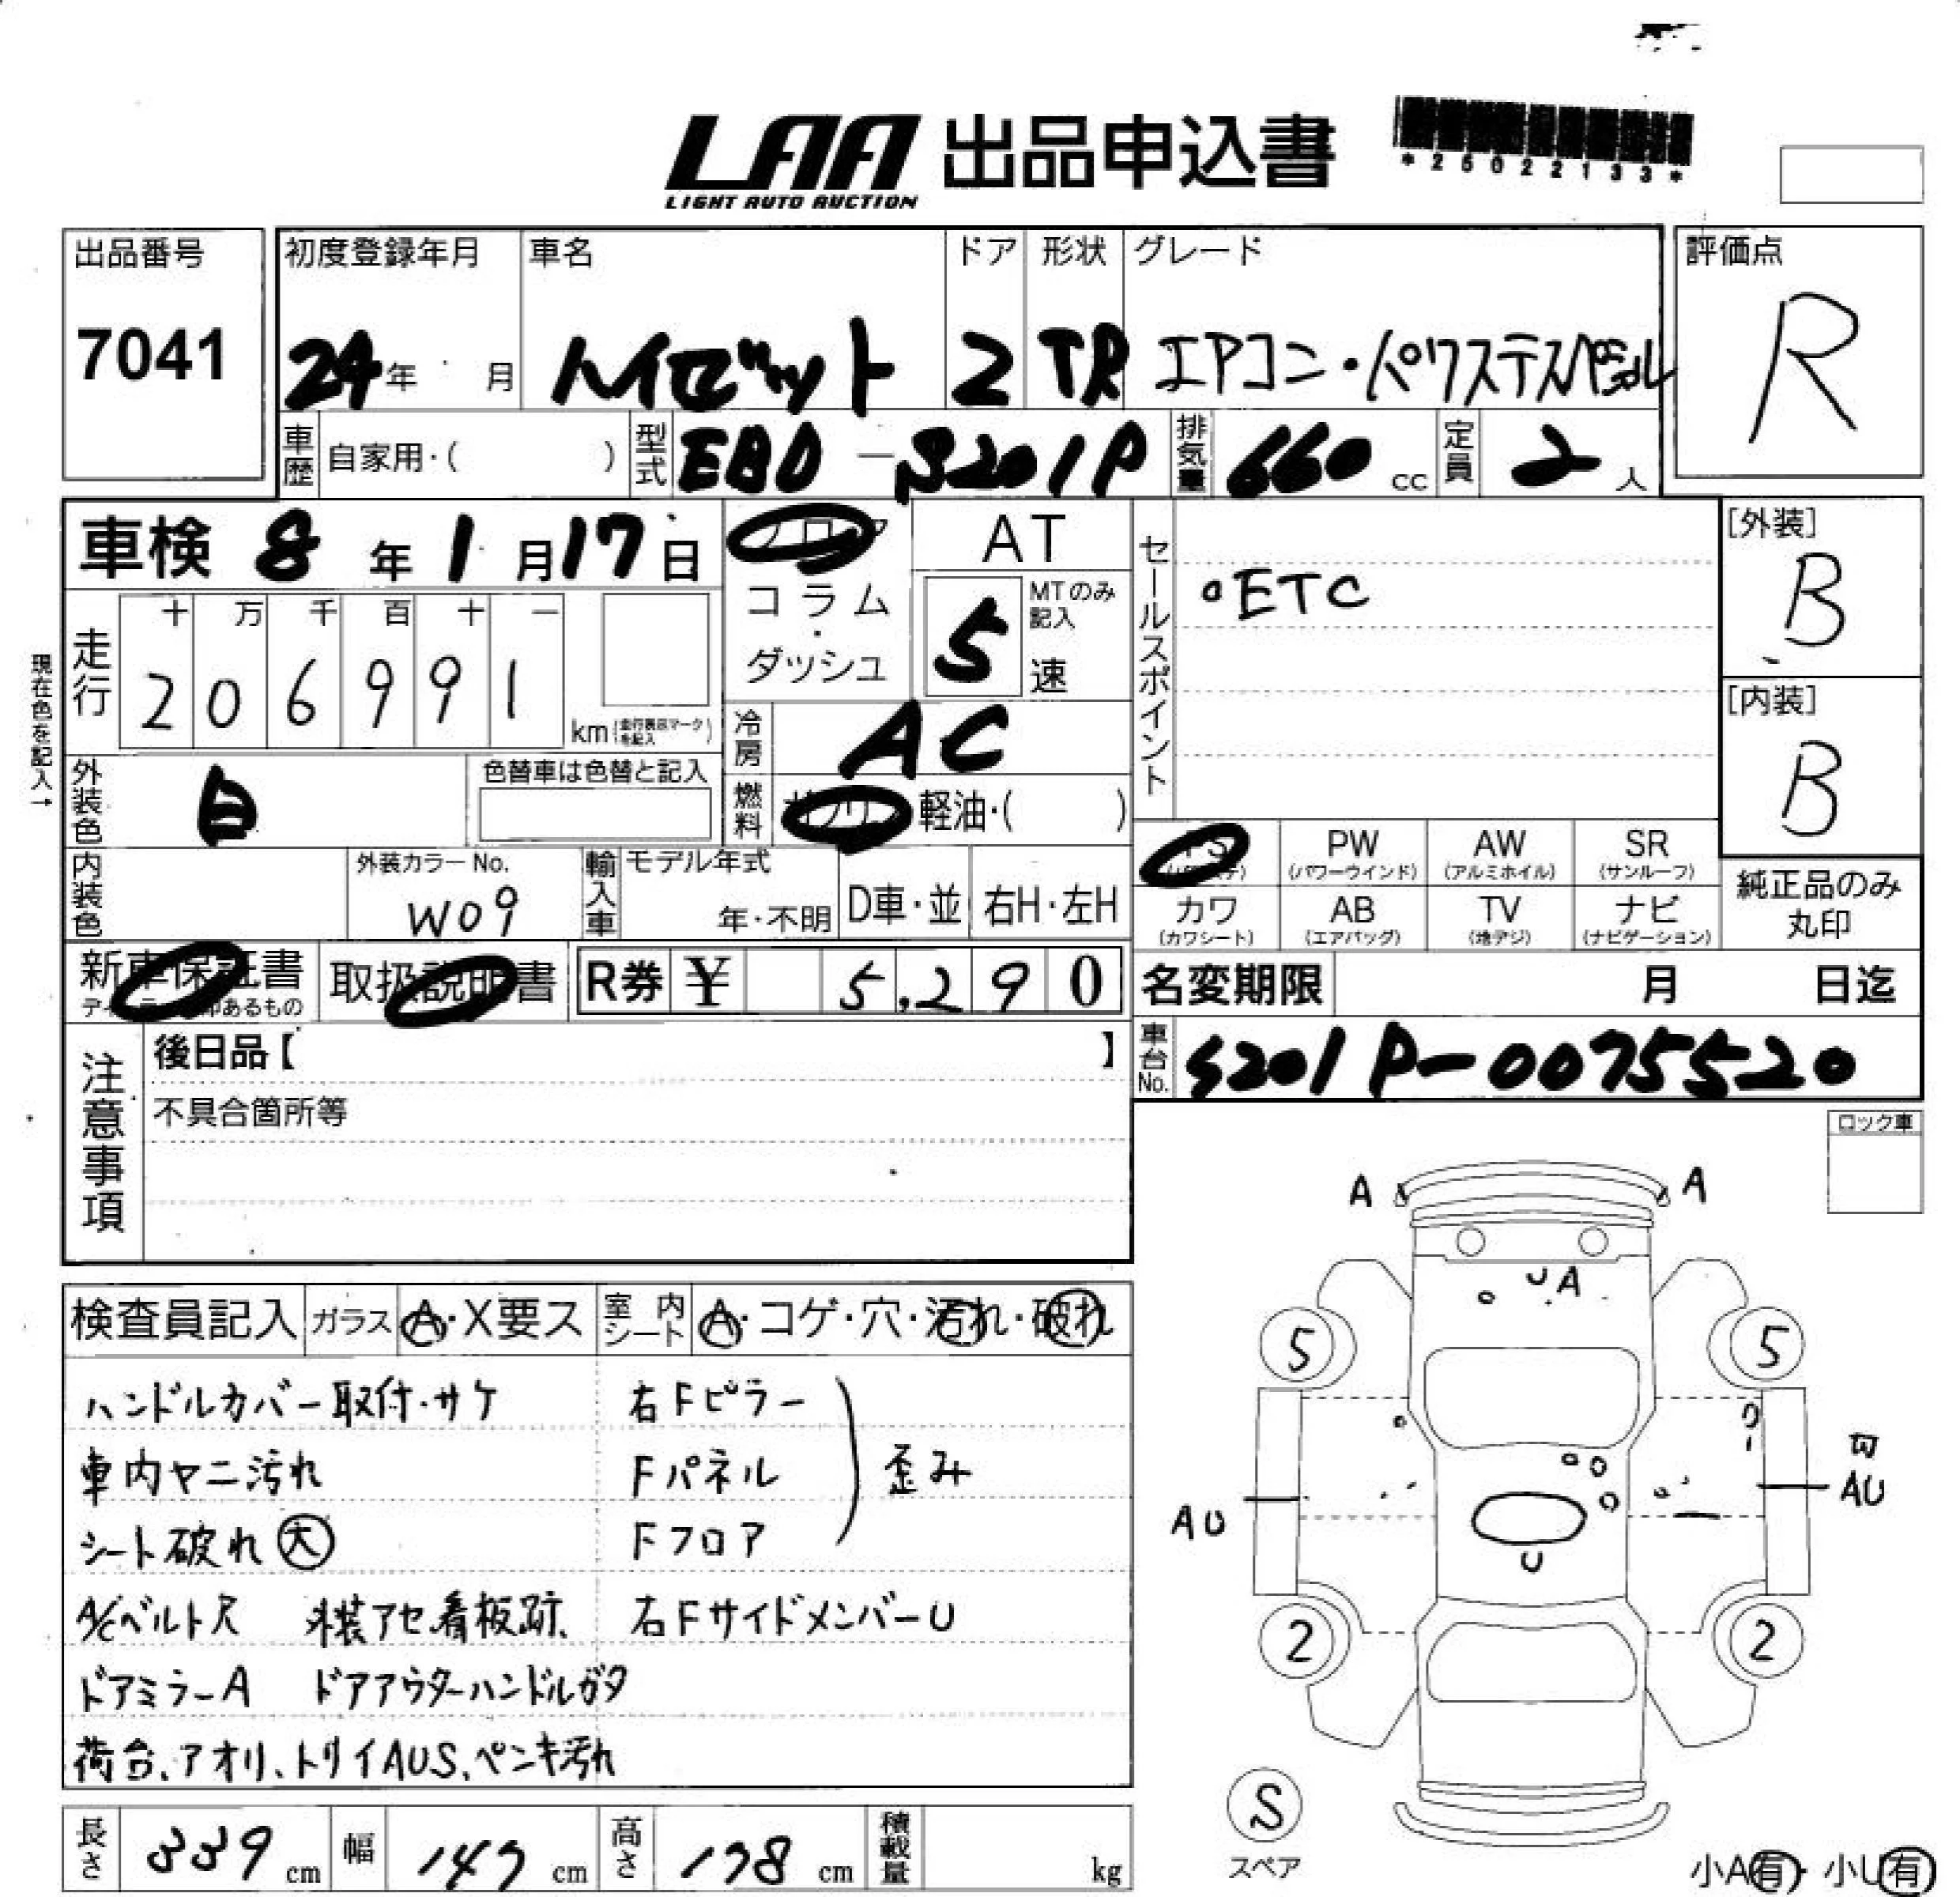 LAA 出品申込書
LIGHT AUTO AUCTION
*25022133*
出品番号 初度登録年月 車名 ドア 形状 グレード 評価点
7041 24年 月 ハイゼット 2 TR エアコン・パワステスペシャル R
車歴 自家用・( ) 型式 EBD-S201P 排気量 660 cc 定員 2 人
車検 8年1月17日 フロア AT セールスポイント [外装]
コラム・ダッシュ 5 MTのみ記入 速 ○ETC B
現在色を記入→
走行 十 万 千 百 十 一
2 0 6 9 9 1 km (走行表示マークを記入) [内装]
冷房 AC B
外装色 白 色替車は色替と記入 燃料 ガソリン 軽油・( )
PS PW AW SR
(パワステ) (パワーウインド) (アルミホイル) (サンルーフ)
内装色 外装カラーNo. W09 輸入車 モデル年式 年・不明 D車・並 右H・左H
カワ AB TV ナビ 純正品のみ丸印
(カワシート) (エアバッグ) (地デジ) (ナビゲーション)
新車保証書 取扱説明書 R券 ¥ 5,290 名変期限 月 日迄
注意事項 後日品【 】 車台No. S201P-0075520
不具合箇所等
ロック車
A A
U A
5 5
AU AU
U
2 2
検査員記入 ガラス A・X要ス 室内シート A・コゲ・穴・汚れ・破れ
ハンドルカバー取付・サケ 右Fピラー
車内ヤニ汚れ Fパネル 歪み
シート破れ 大 Fフロア
A/Cベルト欠 外装アセ、看板跡、 右FサイドメンバーU
ドアミラーA ドアアウターハンドルガタ
荷台、アオリ、トリイAUS、ペンキ汚れ
S
スペア
長さ 339 cm 幅 147 cm 高さ 178 cm 積載量 kg
小A有・小U有